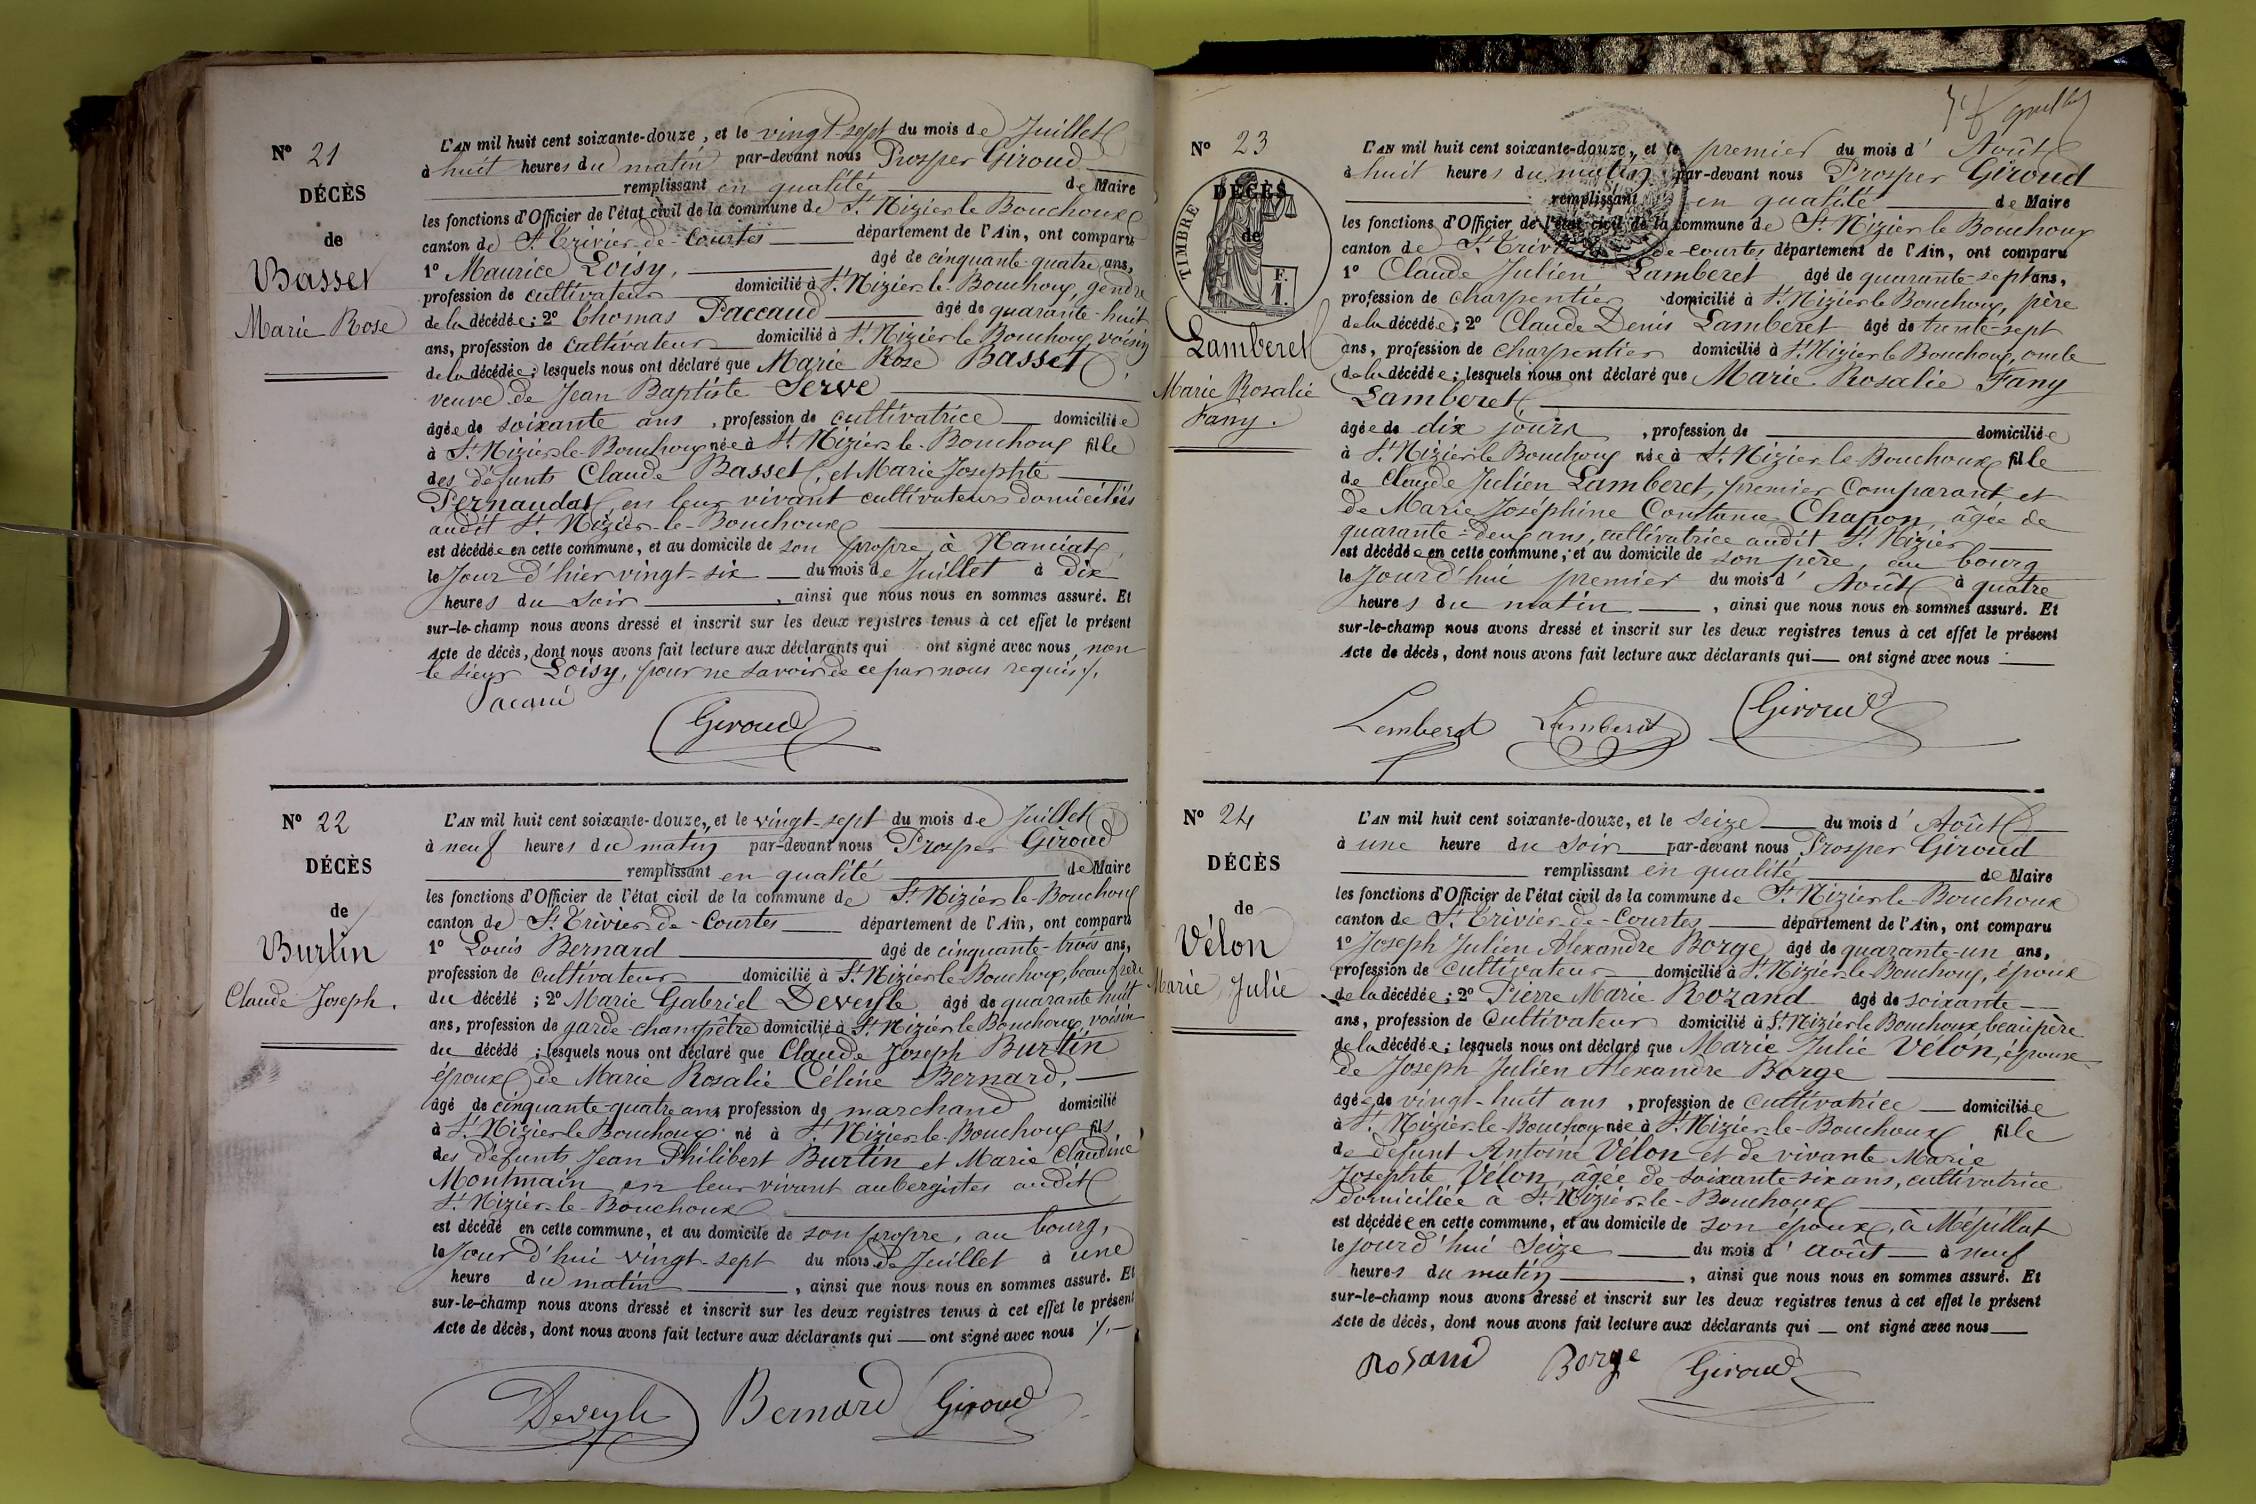 N° 21
DÉCÈS
de
Basset
Marie Rose
L'AN mil huit cent soixante-douze, et le vingt-sept du mois de Juillet
à huit heures du matin par-devant nous Prosper Giroud
remplissant en qualité de Maire
les fonctions d'Officier de l'état civil de la commune de St Nizier le Bouchoux
canton de St Trivier-de-Courtes département de l'Ain, ont comparu
1° Maurice Loisy, âgé de cinquante-quatre ans,
profession de cultivateur domicilié à St Nizier-le-Bouchoux, gendre
de la décédée; 2° Thomas Paccaud âgé de quarante-huit
ans, profession de cultivateur domicilié à St Nizier le Bouchoux voisin
de la décédée; lesquels nous ont déclaré que Marie Rose Basset,
veuve de Jean Baptiste Serve
âgée de soixante ans, profession de cultivatrice domiciliée
à St Nizier-le-Bouchoux née à St Nizier-le-Bouchoux fille
des défunts Claude Basset, et Marie Josephte
Pernaudat, en leur vivant cultivateurs domiciliés
audit St Nizier-le-Bouchoux
est décédée en cette commune, et au domicile de son propre, à Nanciat,
le Jour d'hier vingt-six du mois de Juillet à Dix
heures du soir, ainsi que nous nous en sommes assuré. Et
sur-le-champ nous avons dressé et inscrit sur les deux registres tenus à cet effet le présent
Acte de décès, dont nous avons fait lecture aux déclarants qui ont signé avec nous, non
le sieur Loisy, pour ne savoir de ce par nous requis/.
Pacaud
Giroud
N° 22
DÉCÈS
de
Burtin
Claude Joseph.
L'AN mil huit cent soixante-douze, et le vingt-sept du mois de Juillet
à neuf heures du matin par-devant nous Prosper Giroud
remplissant en qualité de Maire
les fonctions d'Officier de l'état civil de la commune de St Nizier-le-Bouchoux
canton de St Trivier-de-Courtes département de l'Ain, ont comparu
1° Louis Bernard âgé de cinquante-trois ans,
profession de cultivateur domicilié à St Nizier le Bouchoux, beaufrère
du décédé; 2° Marie Gabriel Deveyle âgé de quarante huit
ans, profession de garde-champêtre domicilié à St Nizier le Bouchoux, voisin
du décédé; lesquels nous ont déclaré que Claude Joseph Burtin
époux de Marie Rosalie Céline Bernard,
âgé de cinquante-quatre ans profession de marchand domicilié
à St Nizier le Bouchoux né à St Nizier-le-Bouchoux fils
des défunts Jean Philibert Burtin et Marie Claudine
Montmain en leur vivant aubergistes audit
St Nizier-le-Bouchoux
est décédé en cette commune, et au domicile de son propre, au bourg,
le Jour d'hui vingt-sept du mois de Juillet à une
heure du matin, ainsi que nous nous en sommes assuré. Et
sur-le-champ nous avons dressé et inscrit sur les deux registres tenus à cet effet le présent
Acte de décès, dont nous avons fait lecture aux déclarants qui — ont signé avec nous /.—
Deveyle Bernard Giroud
N° 23
DÉCÈS
de
TIMBRE
F.
1.
Lamberet
Marie Rosalie
Fany.
L'AN mil huit cent soixante-douze, et le premier du mois d'Août
à huit heures du matin par-devant nous Prosper Giroud
remplissant en qualité de Maire
les fonctions d'Officier de l'état civil de la commune de St Nizier le Bouchoux
canton de St Trivier-de-Courtes département de l'Ain, ont comparu
1° Claude Julien Lamberet âgé de quarante-sept ans,
profession de charpentier domicilié à St Nizier le Bouchoux, père
de la décédée; 2° Claude Denis Lamberet âgé de trente-sept
ans, profession de charpentier domicilié à St Nizier le Bouchoux, oncle
de la décédée; lesquels nous ont déclaré que Marie Rosalie Fany
Lamberet,
âgée de dix jours, profession de domiciliée
à St Nizier le Bouchoux née à St Nizier le Bouchoux fille
de Claude Julien Lamberet, premier comparant et
de Marie Joséphine Constance Chapon, âgée de
quarante-deux ans, cultivatrice audit St Nizier
est décédée en cette commune, et au domicile de son père, au bourg
le Jourd'hui premier du mois d'Août à quatre
heures du matin, ainsi que nous nous en sommes assuré. Et
sur-le-champ nous avons dressé et inscrit sur les deux registres tenus à cet effet le présent
Acte de décès, dont nous avons fait lecture aux déclarants qui — ont signé avec nous
Lamberet Lamberet Giroud
N° 24
DÉCÈS
de
Vélon
Marie Julie
L'AN mil huit cent soixante-douze, et le Seize du mois d'Août
à une heure du soir par-devant nous Prosper Giroud
remplissant en qualité de Maire
les fonctions d'Officier de l'état civil de la commune de St Nizier le Bouchoux
canton de St Trivier-de-Courtes département de l'Ain, ont comparu
1° Joseph Julien Alexandre Borge âgé de quarante-un ans,
profession de cultivateur domicilié à St Nizier le Bouchoux, époux
de la décédée; 2° Pierre Marie Rozand âgé de soixante
ans, profession de cultivateur domicilié à St Nizier le Bouchoux beaupère
de la décédée; lesquels nous ont déclaré que Marie Julie Vélon, épouse
de Joseph Julien Alexandre Borge
âgée de vingt-huit ans, profession de cultivatrice domiciliée
à St Nizier-le-Bouchoux née à St Nizier-le-Bouchoux fille
de défunt Antoine Vélon et de vivante Marie
Josephte Vélon, âgée de soixante-six ans, cultivatrice
domiciliée à St Nizier-le-Bouchoux
est décédée en cette commune, et au domicile de son époux, à Mépillat
le jourd'hui Seize du mois d'août à neuf
heures du matin, ainsi que nous nous en sommes assuré. Et
sur-le-champ nous avons dressé et inscrit sur les deux registres tenus à cet effet le présent
Acte de décès, dont nous avons fait lecture aux déclarants qui — ont signé avec nous
Rosand Borge Giroud